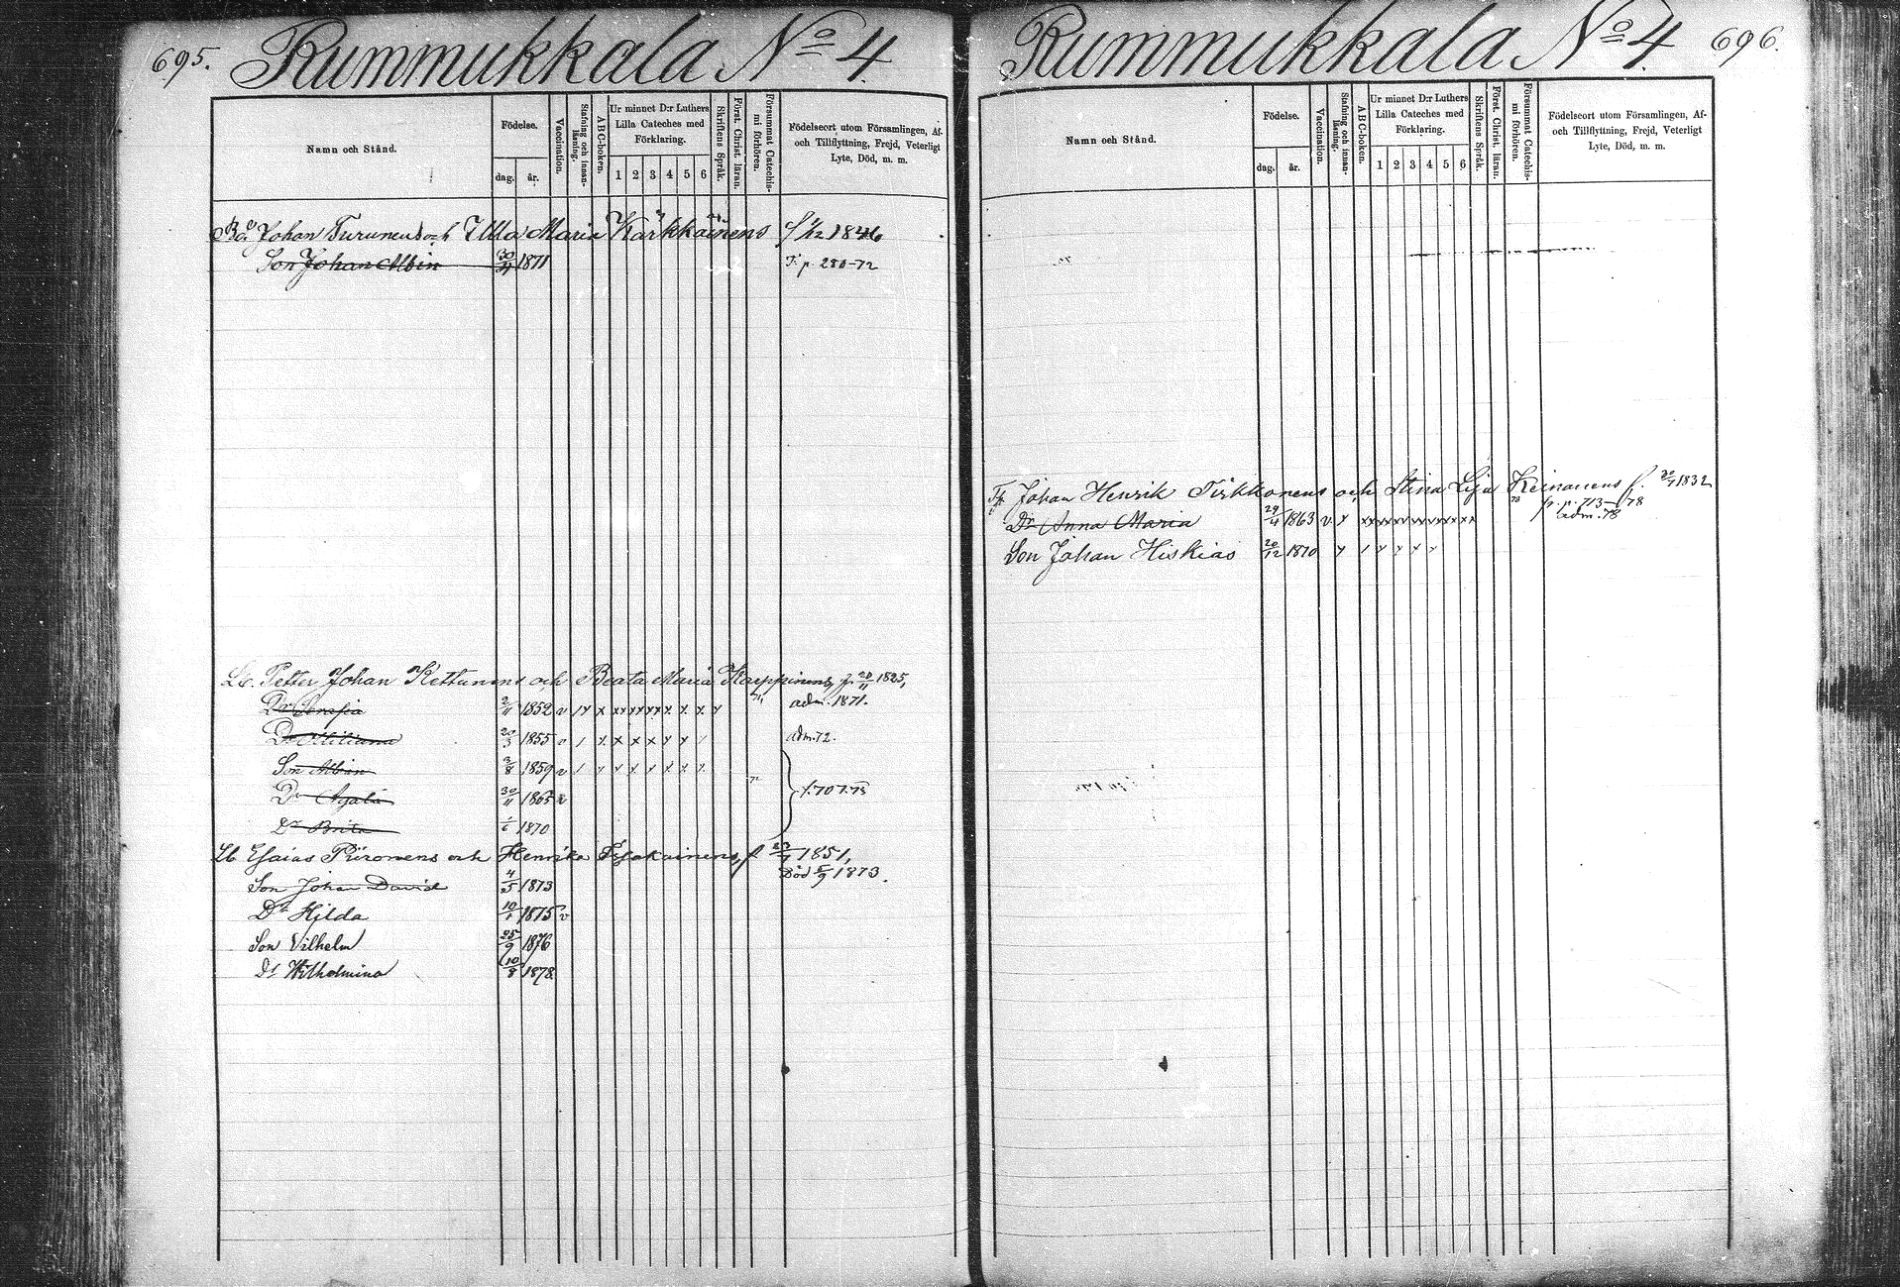 695.
Rummukkala No 4.
Namn och Stånd.
Födelse.
dag.
år.
Vaccination.
Stafning och innan-läsning.
A B C-boken.
Ur minnet D:r Luthers
Lilla Cateches med
Förklaring.
1 2 3 4 5 6
Skriftens Språk.
Först. Christ. läran.
Försummat Catechis-mi förhören.
Födelseort utom Församlingen, Af-
och Tillflyttning, Frejd, Veterligt
Lyte, Död, m. m.
Johan Turunens och Ulla Maria Kärkkäinens f 1/12 1846
Son Johan Albin 1871 T. p. 280-72
Lb. Petter Johan Kettunens och Beata Maria Karppinens, f. 1825,
Dr 2/11 1852 v adm. 1871.
Dr 20/3 1855 v adm. 72.
Son Albin 2/8 1859 v
Dr 30/11 1865 v
Dr Brita 1870
Lb Esaias Piironens och Henrika f 1851,
Son Johan David 4/5 1873 Död 5/9 1873.
Dr Hilda 10/1 1875 v
Son Vilhelm 25/9 1876
Dr Wilhelmina 10/8 1878.
Rummukkala No 4. 696.
Namn och Stånd.
Födelse.
dag.
år.
Vaccination.
Stafning och innan-läsning.
A B C-boken.
Ur minnet D:r Luthers
Lilla Cateches med
Förklaring.
1 2 3 4 5 6
Skriftens Språk.
Först. Christ. läran.
Försummat Catechis-mi förhören.
Födelseort utom Församlingen, Af-
och Tillflyttning, Frejd, Veterligt
Lyte, Död, m. m.
Johan Henrik Tirkkonens och Stina Lisa Keinanens f. 1832
Dr Anna Maria 29/4 1863 v. p. 713-78
adm. 78
Son Johan Hiskias 20/12 1870